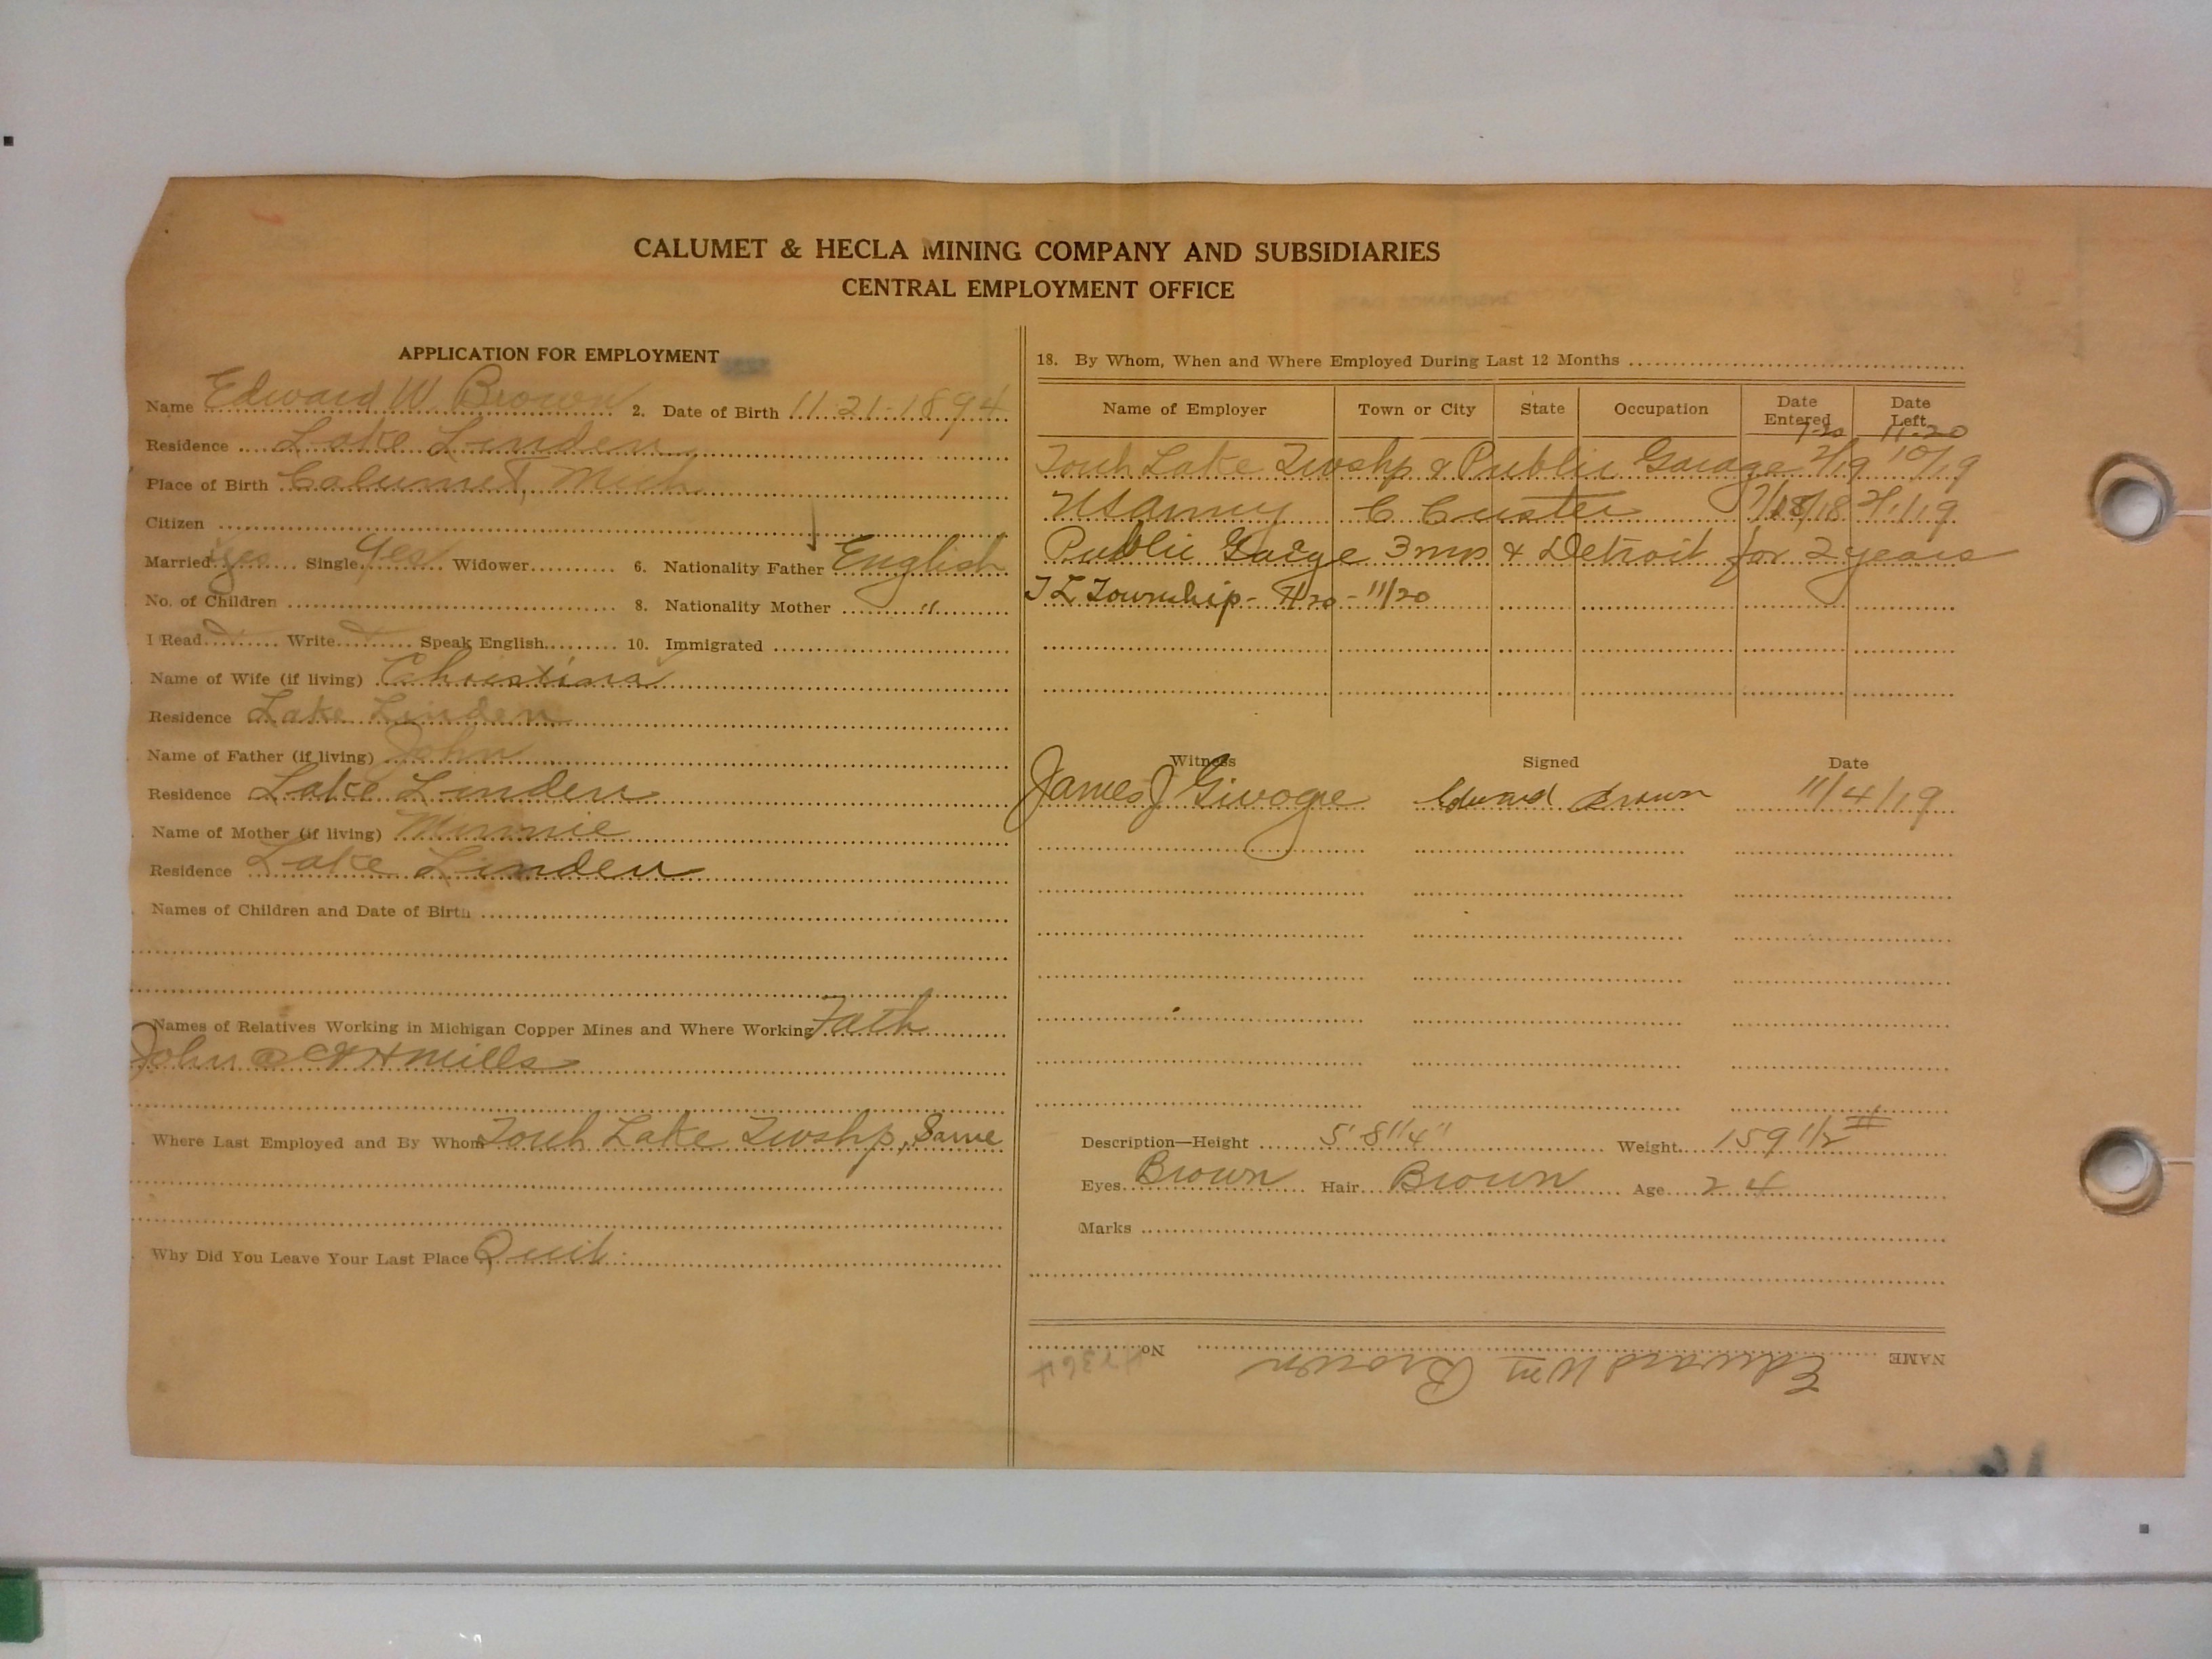 CALUMET & HECLA MINING COMPANY AND SUBSIDIARIES
CENTRAL EMPLOYMENT OFFICE
APPLICATION FOR EMPLOYMENT
Name Edward W. Brown 2. Date of Birth 11-21-1894
Residence Lake Linden
Place of Birth Calumet, Mich
Citizen
Married yes Single yes Widower 6. Nationality Father English
No. of Children 8. Nationality Mother "
I Read Write Speak English 10. Immigrated
Name of Wife (if living) Christina
Residence Lake Linden
Name of Father (if living) John
Residence Lake Linden
Name of Mother (if living) Minnie
Residence Lake Linden
Names of Children and Date of Birth
Names of Relatives Working in Michigan Copper Mines and Where Working Fath
John @ C&H Mills
Where Last Employed and By Whom Torch Lake Twshp, Same
Why Did You Leave Your Last Place Quit
18. By Whom, When and Where Employed During Last 12 Months
Name of Employer Town or City State Occupation Date Entered Date Left
7-20 11-20
Torch Lake Twshp & Public Garage 2/19 10/19
US Army C Custer 7/18/18 2/1/19
Public Garge 3 mos & Detroit for 2 years
T L Township - 7/20 - 11/20
Witness Signed Date
James J Edward Brown 11/4/19
Description—Height 5' 8 1/4" Weight 159 1/2 #
Eyes Brown Hair Brown Age 24
Marks
NAME Edward Wm Brown No.